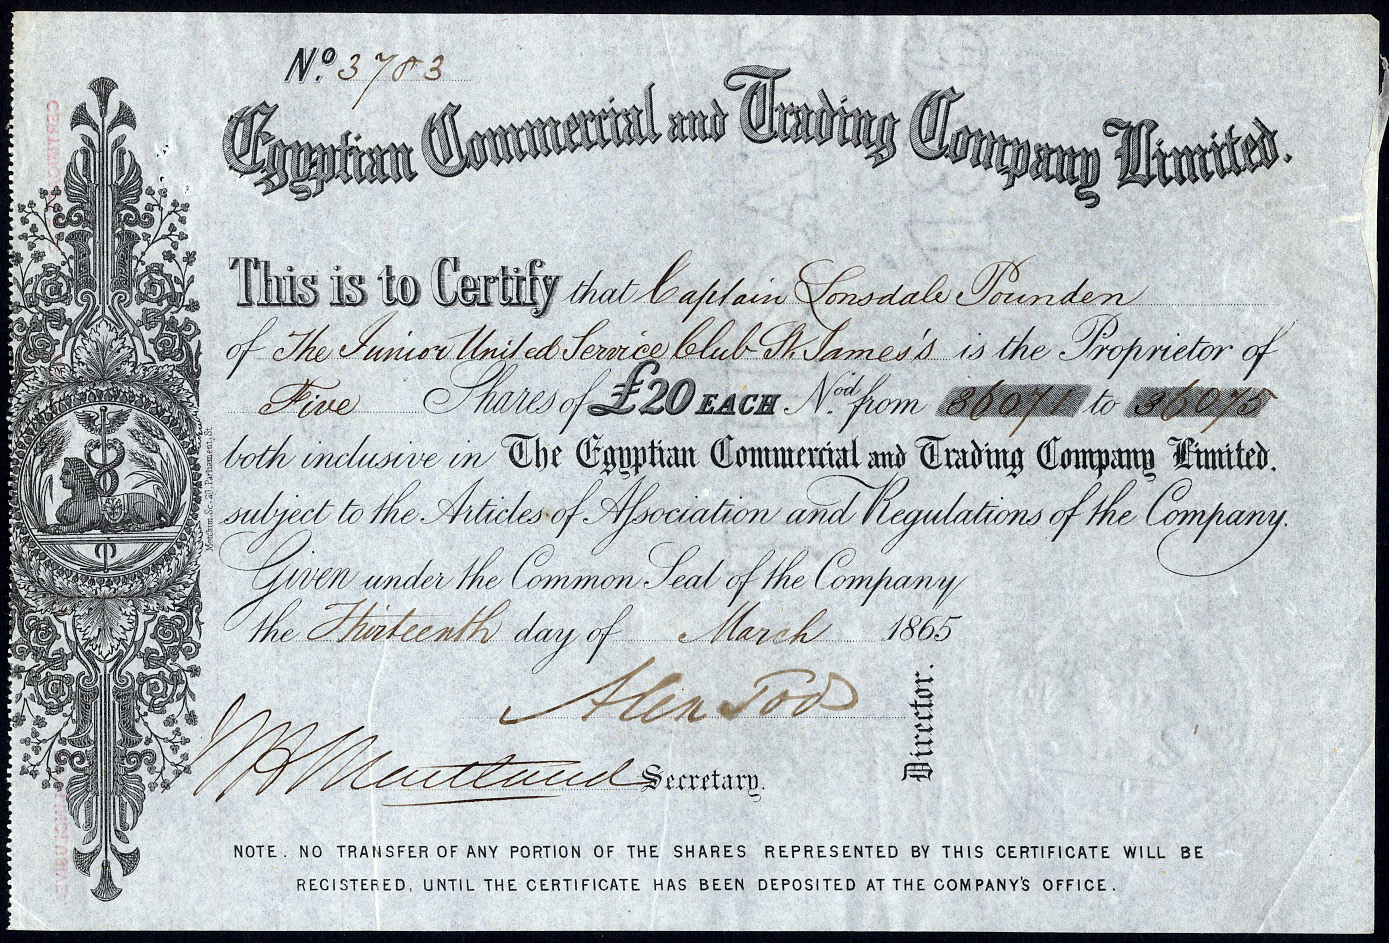 No. 3783
Egyptian Commercial and Trading Company Limited.
This is to Certify that Captain Lonsdale Pounden
of The Junior United Service Club St. James's is the Proprietor of
Five Shares of £20 EACH No.d from 36071 to 36075
both inclusive in The Egyptian Commercial and Trading Company Limited.
subject to the Articles of Association and Regulations of the Company.
Given under the Common Seal of the Company
the Thirteenth day of March 1865
Alex Tod
Director.
Maitland Secretary.
NOTE. NO TRANSFER OF ANY PORTION OF THE SHARES REPRESENTED BY THIS CERTIFICATE WILL BE
REGISTERED, UNTIL THE CERTIFICATE HAS BEEN DEPOSITED AT THE COMPANY'S OFFICE.